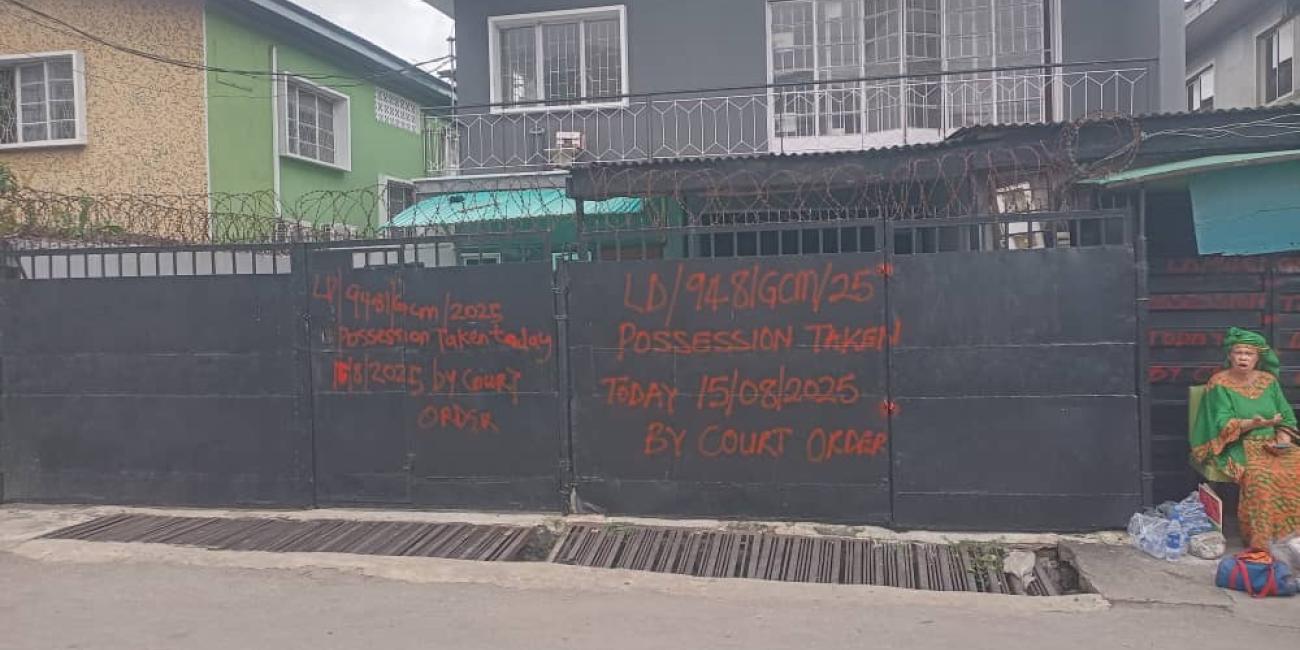 LD/948/Gcm/2025
Possession Taken today
15/8/2025 by COURT
ORDER
LD/948/GCM/25
POSSESSION TAKEN
TODAY 15/08/2025
BY COURT ORDER